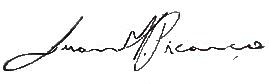 Juan M. Picanço